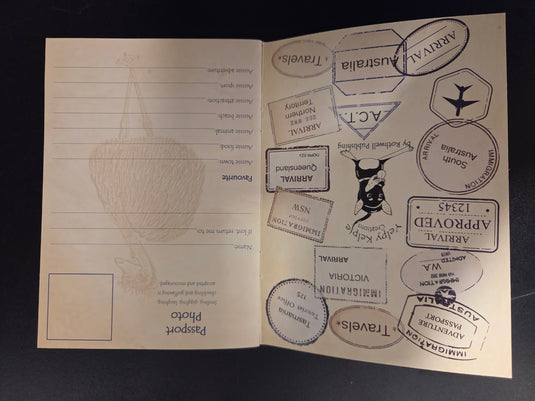 Passport
Photo
Smiling, giggling, laughing,
chuckling and guffawing is
accepted and encouraged.
Name:
If lost, return me to:
Favourite
Aussie town:
Aussie food:
Aussie animal:
Aussie beach:
Aussie attraction:
Aussie sport:
Aussie adventure:
IMMIGRATION
ADVENTURE
PASSPORT
AUSTRALIA
Travels
Tasmania
Tourist Office
125
IMMIGRATION
ADMITTED
WA
IMMIGRATION
VICTORIA
ARRIVAL
ARRIVAL
APPROVED
12345
Yelpy Kelpie
Creations
by Rothwell Publishing
IMMIGRATION
NSW
IMMIGRATION
South
Australia
ARRIVAL
ARRIVAL
Queensland
A.C.T.
ARRIVAL
Northern
Territory
ARRIVAL
Australia
Travels